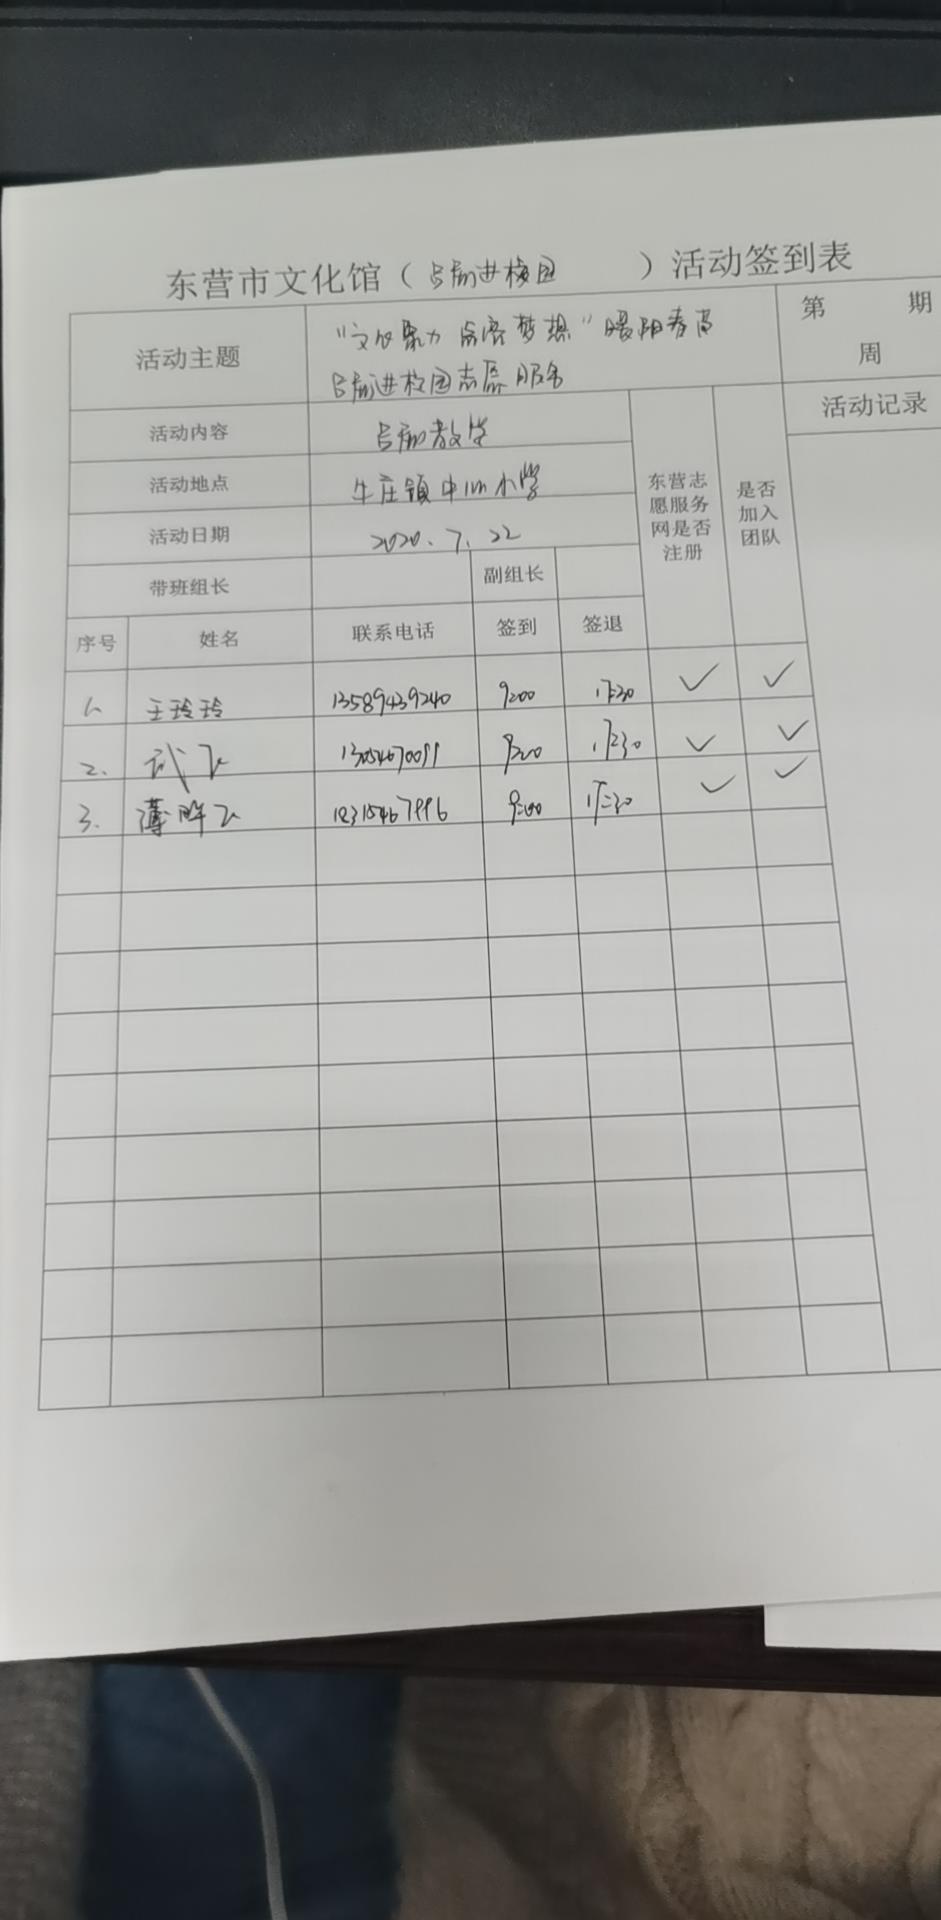 东营市文化馆（吕剧进校园）活动签到表
活动主题 "文化聚力 点亮梦想"暖阳春苗 第 期
吕剧进校园志愿服务 周
活动内容 吕剧教学 东营志愿服务网是否注册 是否加入团队 活动记录
活动地点 牛庄镇中心小学
活动日期 2020.7.22
带班组长 副组长
序号 姓名 联系电话 签到 签退
1. 王玲玲 13589439240 9:00 17:30 ✓ ✓
2. 武飞 9:00 17:30 ✓ ✓
3. 9:00 17:30 ✓ ✓